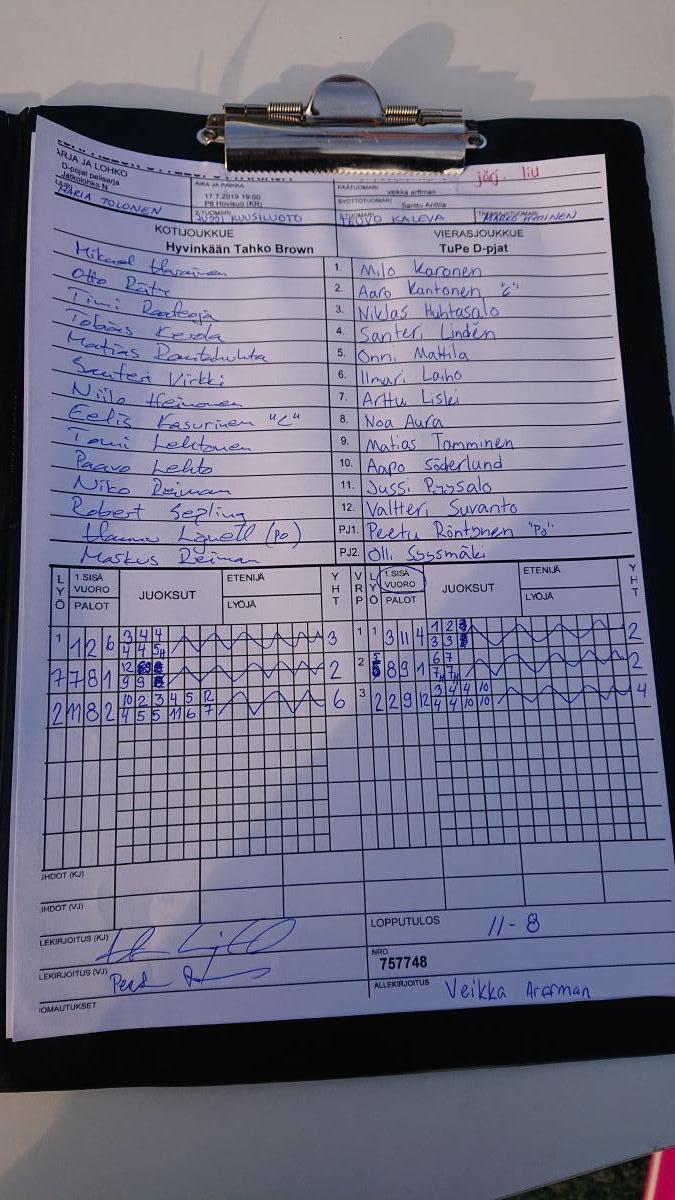 ARJA JA LOHKO
D-pojat pelisarja
Jatkolohko N
MARIA TOLONEN
AIKA JA PAIKKA
17.7.2019 19:00
P8 Hovisuo (KR)
2-TUOMARI
JUSSI KUUSILUOTO
PÄÄTUOMARI
veikka arffman
SYÖTTÖTUOMARI
Santtu Anttila
TEUVO KALEVA
MARKO HYNINEN
järj. liu
KOTIJOUKKUE
Hyvinkään Tahko Brown
VIERASJOUKKUE
TuPe D-pjat
Mikael
1. Milo Karonen
Otto
2. Aaro Kantonen "C"
Timi
3. Niklas Huhtasalo
Tobias
4. Santeri Lindén
Matias Rautahuhta
5. Onni Mattila
Santeri Virkki
6. Ilmari Laiho
Niilo Heinonen
7. Arttu Liski
Eelis Kasurinen "C"
8. Noa Aura
Tomi Lehtonen
9. Matias Tamminen
Paavo Lehto
10. Aapo Söderlund
Niko Reiman
11. Jussi Pyysalo
Robert Sepling
12. Valtteri Suvanto
Hannu Lignell (PO)
PJ1. Peetu Röntynen "Po"
Markus Reiman
PJ2. Olli Syysmäki
LYÖ 1.SISÄ VUORO PALOT JUOKSUT ETENIJÄ LYÖJÄ YHT
VRP LYÖ 1.SISÄ VUORO PALOT JUOKSUT ETENIJÄ LYÖJÄ YHT
1 1 2 6 3 4 4 3 1 1 3 11 4 1 2 2
4 4 5 3 3
7 7 8 1 12 2 2 8 9 1 6 7 2
9 9 7 7
2 11 8 2 10 2 3 4 5 12 6 3 2 2 9 12 3 4 4 10 4
4 5 5 11 6 7 4 4 10 10
IHDOT (KJ)
IHDOT (VJ)
LEKIRJOITUS (KJ)
LOPPUTULOS 11-8
LEKIRJOITUS (VJ)
NRO
757748
IOMAUTUKSET
ALLEKIRJOITUS Veikka Arffman